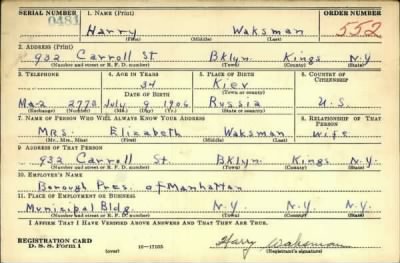 SERIAL NUMBER 1. NAME (Print) ORDER NUMBER
0483 Harry Waksman 552
(First) (Middle) (Last)
2. ADDRESS (Print)
932 Carroll St Bklyn. Kings N.Y
(Number and street or R. F. D. number) (Town) (County) (State)
3. TELEPHONE 4. AGE IN YEARS 5. PLACE OF BIRTH 6. COUNTRY OF CITIZENSHIP
34 Kiev
DATE OF BIRTH (Town or county)
Ma-2 2773 July 9 1906 Russia U.S.
(Exchange) (Number) (Mo.) (Day) (Yr.) (State or country)
7. NAME OF PERSON WHO WILL ALWAYS KNOW YOUR ADDRESS 8. RELATIONSHIP OF THAT PERSON
Mrs. Elizabeth Waksman wife
(Mr., Mrs., Miss) (First) (Middle) (Last)
9. ADDRESS OF THAT PERSON
932 Carroll St. Bklyn. Kings N.Y.
(Number and street or R. F. D. number) (Town) (County) (State)
10. EMPLOYER'S NAME
Borough Pres. of Manhattan
11. PLACE OF EMPLOYMENT OR BUSINESS
Municipal Bldg. N.Y. N.Y. N.Y.
(Number and street or R. F. D. number) (Town) (County) (State)
I AFFIRM THAT I HAVE VERIFIED ABOVE ANSWERS AND THAT THEY ARE TRUE.
REGISTRATION CARD
D. S. S. Form 1 (over) 16-17105 Harry Waksman
(Registrant's signature)